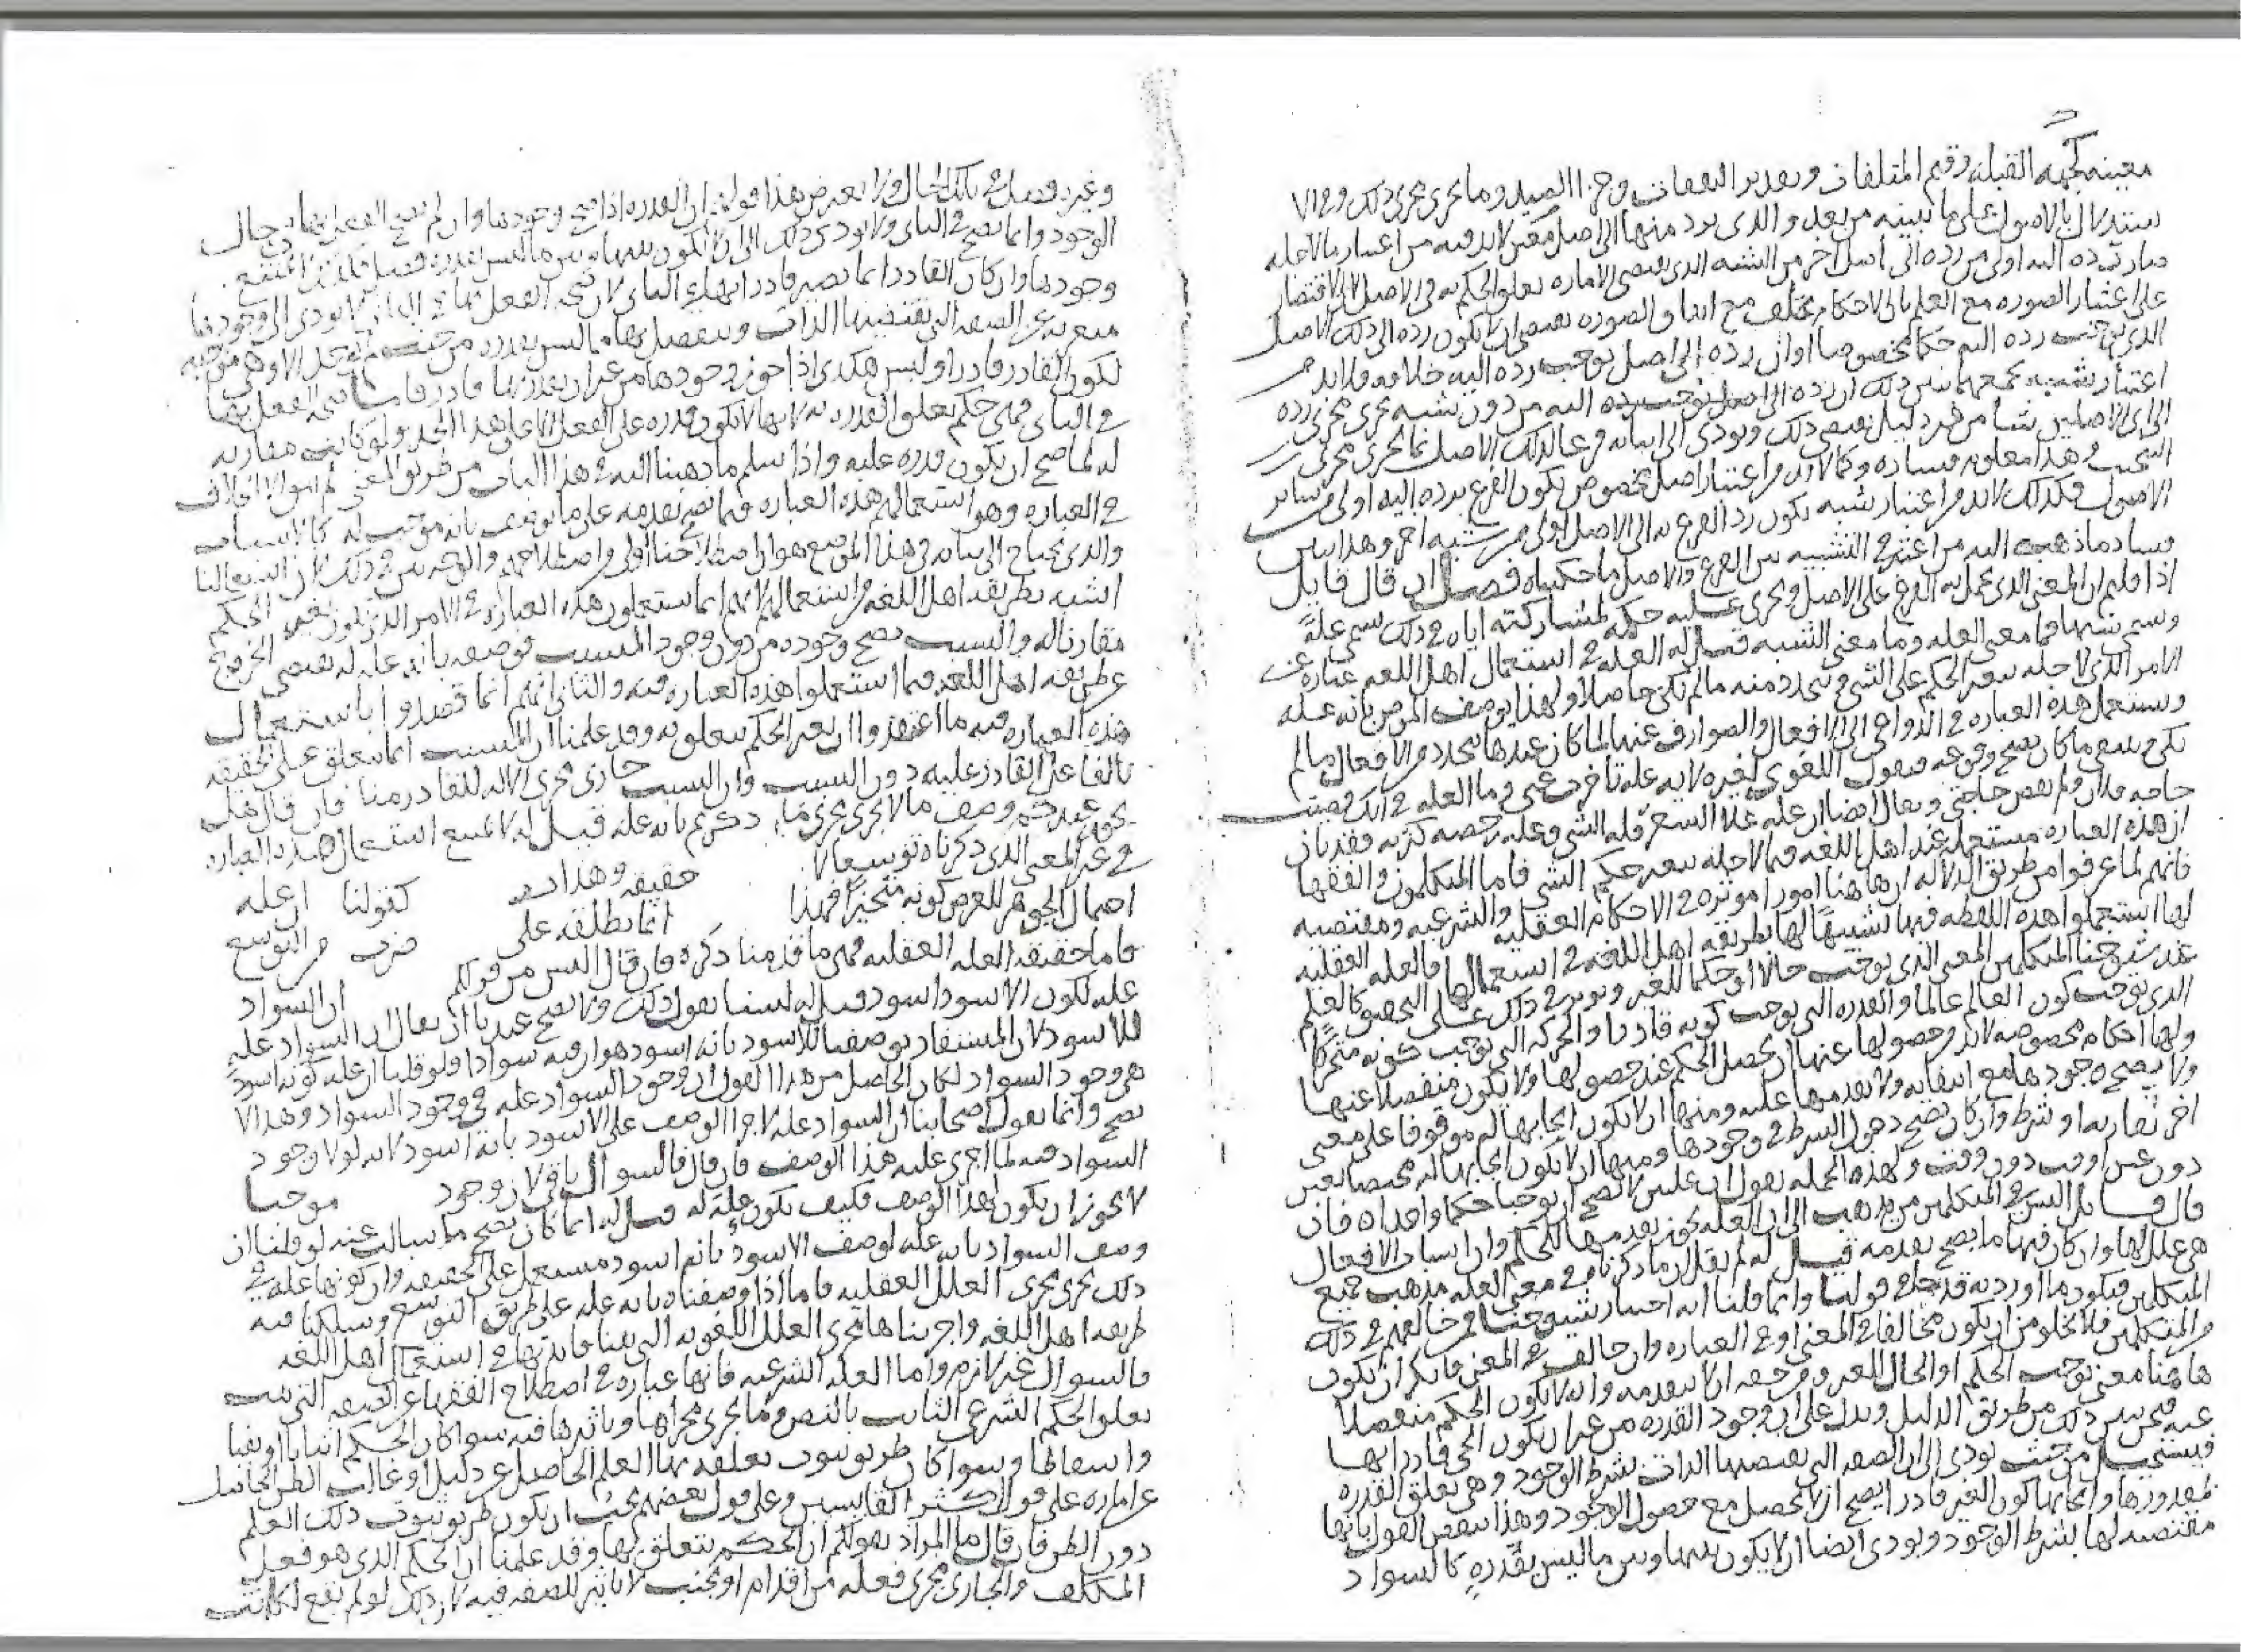 معينه كجهة القبلة وقيم المتلفات وتقدير النفقات وجزا الصيد وما يجرى مجرى ذلك
ستدلال بالاصول على ما نبينه من بعد والذى يرد منها الى اصل معين لابد فيه من اعتبار ما لاجله
صار رده اليه اولى من رده الى اصل اخر من الشبه الذى يقتضى الاماره تعلق الحكم به فى الاصل لان الاقتصار
على اعتبار الصوره مع العلم بان الاحكام تختلف مع اتفاق الصوره يقتضى ان لا يكون رده الى ذلك الاصل
الذى يوجب رده اليه حكما مخصوصا اولى من رده الى اصل يوجب رده اليه خلافه فلابد من
اعتبار شبه يجمعهما يبين ذلك ان رده الى اصل يوجب رده اليه من دون شبه يجرى مجرى رده
الى اى الاصلين شا من غير دليل يقتضى ذلك ويودى الى اثباته فرعا لذلك الاصل بما يجرى مجرى
التبخيت وهذا معلوم فساده وكما لابد من اعتبار اصل مخصوص يكون الفرع برده اليه اولى من ساير
الاصول فكذلك لابد من اعتبار شبه يكون رد الفرع به الى الاصل اولى من شبه اخر وهذا يبين
فساد ما ذهب اليه من اعتبر فى التشبيه بين الفرع والاصل ما حكيناه فصل ان قال قايل
اذا قلتم ان المعنى الذى يحمل به الفرع على الاصل ويجرى عليه حكمه لمشاركته اياه فى ذلك يسمى علة
ويسمى شبها فما معنى العله وما معنى الشبه قيل له العله فى استعمال اهل اللغه عباره عن
الامر الذى لاجله يتغير الحكم على الشى ويتجدد منه ما لم يكن حاصلا ولهذا يوصف المرض بانه عله
وتستعمل هذه العباره فى الدواعى الى الافعال والصوارف عنها لما كان عندها يتجدد من الافعال ما لم
يكن وينتفى ما كان يصح وقوعه فيقول اللغوى لغيره لاية علة تاخرت عنى وما العله فى انك قضيت
حاجه فلان ولم تقض حاجتى ويقال ايضا ان علة غلا السعر قلة الشى وعلة رخصه كثرته فقد بان
ان هذه العباره مستعمله عند اهل اللغه فيما لاجله يتغير حكم الشى فاما المتكلمون والفقها
فانهم لما عرفوا من طريق الدلاله ان هاهنا امورا موثره فى الاحكام العقليه والشرعيه ومقتضيه
لها استعملوا هذه اللفظه فيها تشبيها لها بطريقه اهل اللغه فى استعمالها فالعله العقليه
عند شيوخنا المتكلمين المعنى الذى يوجب حالا او حكما للغير ويوثر فى ذلك على التحقيق كالعلم
الذى يوجب كون العالم عالما والقدره التى يوجب كونه قادرا والحركه التى توجب كونه متحركا
ولها احكام مخصوصه لابد من حصولها عنها ان يحصل الحكم عند حصولها ولا يكون منفصلا عنها
ولا يصح وجودها مع انتفايه ولا تقدمها عليه ومنها ان لا يكون ايجابها له موقوفا على معنى
اخر تقارنه او شرط وان كان يصح دخول الشرط فى وجودها ومنها ان لا يكون ايجابها له مختصا بعين
دون عين او وقت دون وقت ولهذه الجمله نقول ان علتين لا يصح ان توجبا حكما واحدا فان
قال قايل اليس فى المتكلمين من يذهب الى ان العله يجوز تقدمها للحكم وان اسباب الافعال
هى علل لها وان كان فيها ما يصح تقدمه قيل له لم نقل ان ما ذكرناه فى معنى العله مذهب جميع
المتكلمين فيكون ما اوردته قدحا فى قولنا وانما قلنا انه اختيار شيوخنا فمن خالفهم فى ذلك
من المتكلمين فلا يخلو من ان يكون مخالفا فى المعنى او فى العباره وان خالف فى المعنى فانكر ان تكون
هاهنا معنى توجب الحكم او الحال للغير ومن حقه ان لا يتقدمه وانه لا يكون الحكم منفصلا
عنه فنحن نبين ذلك من طريق الدليل وندل على ان وجود القدره من غير ان يكون الحى قادرا بها
فيستحيل من حيث يودى الى ان الصفه التى تقتضيها الذات بشرط الوجود وهى تعلق القدره
بمقدورها وايجابها كون الغير قادرا يصح ان لا تحصل مع حصول الوجود وهذا ينقض القول بانها
مقتضيه لها بشرط الوجود ويودى ايضا الى ان لا يكون بينها وبين ما ليس بقدره كالسواد
وغيره فصل فى تلك الحال ولا يعترض هذا قولنا ان القدره اذا صح وجودها وان لم يصح الفعل بها فى حال
الوجود وانما يصح فى الثانى ولا يودى ذلك الى ان لا يكون بينها وبين ما ليس بقدره فصل
وجودها وان كان القادر انما يصير قادرا بها فى الثانى لان صحة الفعل بها
الصفه التى تقتضيها الذات وينفصل بها مما ليس بقدره من حيث
لكون القادر قادرا وليس هكذى اذا جوز وجودها من غير ان يقدر بها قادر
فى الثانى فمتى حكم تعلق القدره به لانها لا تكون قدره على الفعل الا على هذا الحد ولو كانت مقارنه
له لما صح ان يكون قدره عليه واذا سلم ما ذهبنا اليه فى هذا الباب من طريق المعنى لم يبق الا الخلاف
فى العباره وهو استعمالهم هذه العباره فيما يصح تقدمه على ما يوصف بانه موجب له كالاسباب
والذى نحتاج الى بيانه فى هذا الموضع هو ان اصطلاحنا اولى من اصطلاحهم والوجه يبين فى ذلك لان استعمالنا
اشبه بطريقه اهل اللغه من استعمالهم لانهم انما يستعملون هذه العباره فى الامر الذى يكون تغير الحكم
مقارنا له والسبب يصح وجوده من دون وجود المسبب فوصفه بانه علة له يقتضى الخروج
عن طريقه اهل اللغه فيما استعملوا هذه العباره فيه والثانى انهم انما قصدوا باستعمال
هذه العباره فيه ما اعتقدوا ان تغير الحكم يتعلق به وقد علمنا ان المسبب انما يتعلق على الحقيقه
بالفاعل القادر عليه دون السبب وان السبب جارى مجرى الاله للقادر منا فان قال هلى
وصف ما لا يجرى مجرى ما ذكرتم بانه علة قيل له لا نمنع استعمال هذه العباره
فى غير المعنى الذى ذكرناه توسعا لا حقيقه وهذا كقولنا ان عله
احتمال الجوهر للعرض كونه متحيزا فهذا انما نطلقه على ضرب من التوسع
فاما حقيقة العله العقليه فهى ما قدمنا ذكره فان قال اليس من قولكم ان السواد
عله لكون الاسود اسود قيل له لسنا نقول ذلك ولا يصح عندنا ان يقال ان السواد علة
للاسود لان المستفاد بوصفنا للاسود بانه اسود هو ان فيه سوادا ولو قلنا ان علة كونه اسود
هى وجود السواد لكان الحاصل من هذا القول ان وجود السواد علة فى وجود السواد وهذا لا
يصح وانما يقول اصحابنا ان السواد علة لاجرا الوصف على الاسود بانه اسود لانه لولا وجود
السواد فيه لما اجرى عليه هذا الوصف فان قال فالسوال باقى لان وجود موجبا
لا يجوز ان يكون لهذا الوصف فكيف يكون علة له قيل له انما كان يصح ما سالت عنه لو قلنا ان
وصف السواد بانه علة لوصف الاسود بانه اسود مستعمل على الحقيقه وان كونها علة فى
ذلك يجرى مجرى العلل العقليه فاما اذا وصفناه بانه عله على طريق التوسع وسلكنا فيه
طريقة اهل اللغه واجريناها مجرى العلل اللغويه التى بينا فايدتها فى استعمال اهل اللغه
فالسوال غير لازم واما العله الشرعيه فانها عباره فى اصطلاح الفقها عن الصفه التى يثبت
تعلق الحكم الشرعى الثابت بالنص وما يجرى مجراها وتاثيرها فيه سوا كان الحكم اثباتا او نفيا
واسقاطا وسوا كان طريق ثبوت تعلقه بها العلم الحاصل عن دليل او غالب الظن الحاصل
عن اماره على قول اكثر القايسين وعلى قول بعضهم يجب ان يكون طريق ثبوت ذلك العلم
دون الظن فان قال ما المراد بقولكم ان الحكم يتعلق بها وقد علمنا ان الحكم الذى هو فعل
المكلف والجارى مجرى فعله من اقدام او تجنب لا تاثير للصفه فيه لان ذلك لو لم يقع لكانت